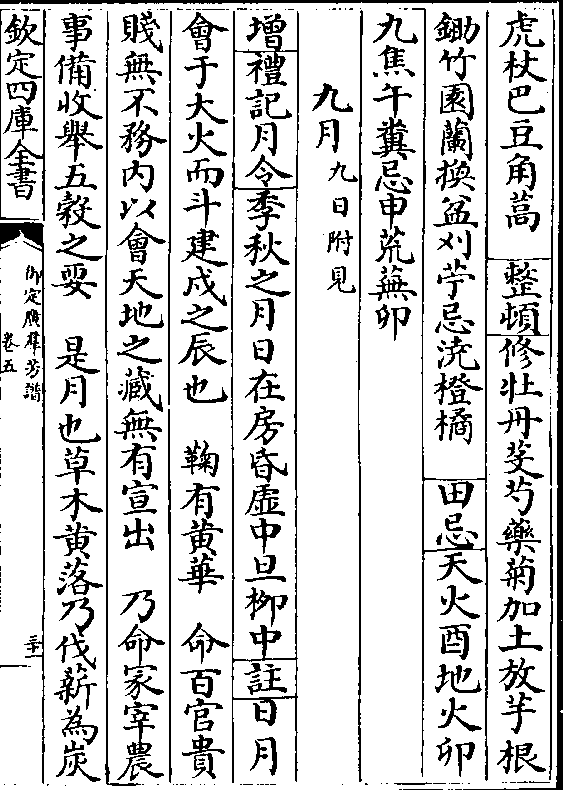 虎杖巴豆角蒿　整頓修牡丹芟芍藥菊加土放芋根
鋤竹園蘭換盆刈苧忌澆橙橘　田忌天火酉地火卯
九焦午糞忌申荒蕪卯
九月九日附見
增禮記月令季秋之月日在房昏虛中旦柳中註日月
會于大火而斗建戍之辰也　鞠有黃華　命百官貴
賤無不務內以會天地之藏無有宣出　乃命冢宰農
事備收舉五穀之要　是月也草木黃落乃伐薪為炭
欽定四庫全書
御定廣羣芳譜
卷五
三十一